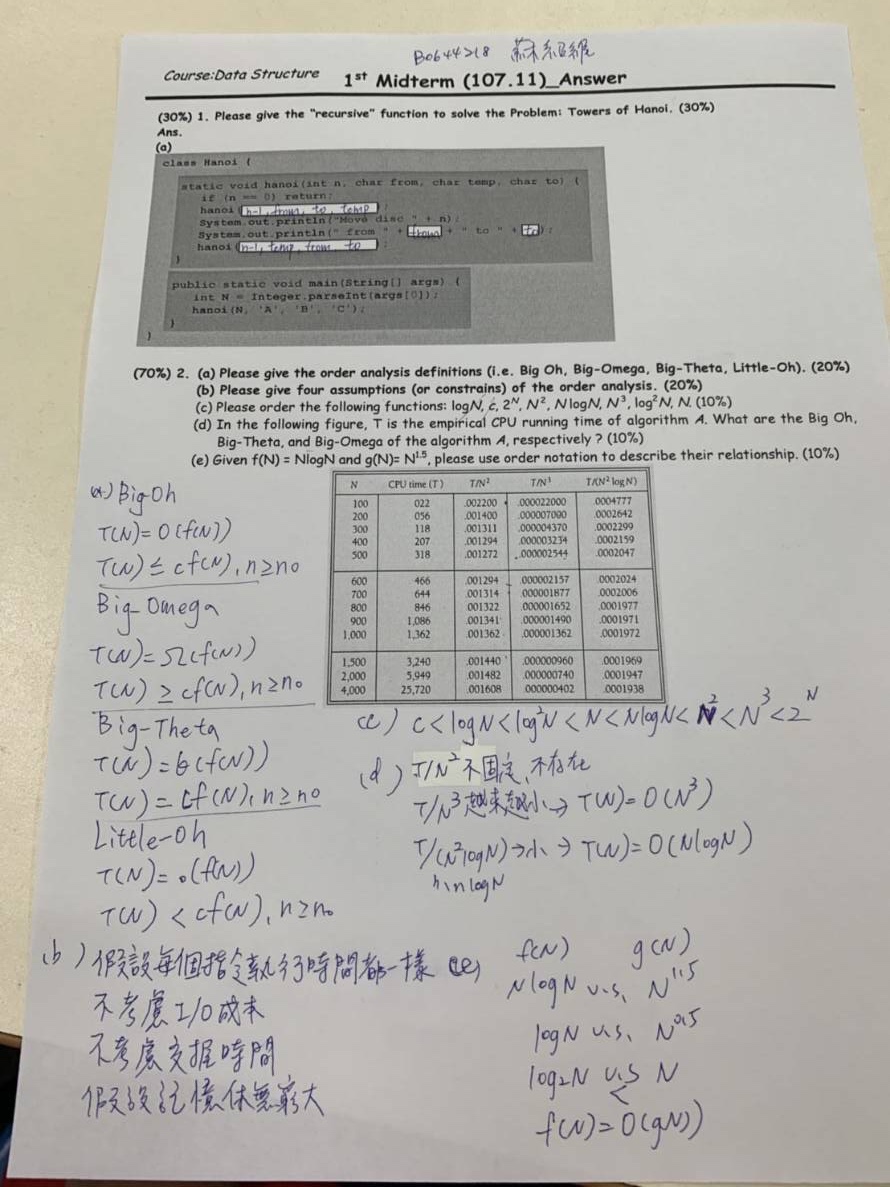 B0644218 蘇紹維
Course:Data Structure 1st Midterm (107.11)_Answer
(30%) 1. Please give the "recursive" function to solve the Problem: Towers of Hanoi. (30%)
Ans.
(a)
class Hanoi {
static void hanoi(int n, char from, char temp, char to) {
if (n == 0) return;
hanoi (n-1, from, to, temp);
System.out.println("Move disc " + n);
System.out.println(" from " + from + " to " + to);
hanoi (n-1, temp, from, to);
}
public static void main(String[] args) {
int N = Integer.parseInt(args[0]);
hanoi(N, 'A', 'B', 'C');
}
}
(70%) 2. (a) Please give the order analysis definitions (i.e. Big Oh, Big-Omega, Big-Theta, Little-Oh). (20%)
(b) Please give four assumptions (or constrains) of the order analysis. (20%)
(c) Please order the following functions: logN, c, 2^N, N², NlogN, N³, log²N, N. (10%)
(d) In the following figure, T is the empirical CPU running time of algorithm A. What are the Big Oh,
Big-Theta, and Big-Omega of the algorithm A, respectively ? (10%)
(e) Given f(N) = NlogN and g(N)= N^1.5, please use order notation to describe their relationship. (10%)
N CPU time (T) T/N² T/N³ T/(N² log N)
100 022 .002200 .000022000 .0004777
200 056 .001400 .000007000 .0002642
300 118 .001311 .000004370 .0002299
400 207 .001294 .000003234 .0002159
500 318 .001272 .000002544 .0002047
600 466 .001294 .000002157 .0002024
700 644 .001314 .000001877 .0002006
800 846 .001322 .000001652 .0001977
900 1,086 .001341 .000001490 .0001971
1,000 1,362 .001362 .000001362 .0001972
1,500 3,240 .001440 .000000960 .0001969
2,000 5,949 .001482 .000000740 .0001947
4,000 25,720 .001608 .000000402 .0001938
(a) Big-Oh
T(N)=O(f(N))
T(N) ≤ cf(N), n≥n₀
Big-Omega
T(N)=Ω(f(N))
T(N) ≥ cf(N), n≥n₀
Big-Theta
T(N)=θ(f(N))
T(N)=cf(N), n≥n₀
Little-oh
T(N)=o(f(N))
T(N) < cf(N), n≥n₀
(b) 假設每個指令執行時間都一樣
不考慮I/O成本
不考慮交握時間
假設記憶体無窮大
(c) C<logN<log²N<N<NlogN<N²<N³<2^N
(d) T/N²不固定,不存在
T/N³越來越小→T(N)=O(N³)
T/(N²logN)→小→T(N)=O(NlogN)
(e) f(N) g(N)
NlogN v.s. N^1.5
logN v.s. N^0.5
log²N v.s N
<
f(N)=O(g(N))